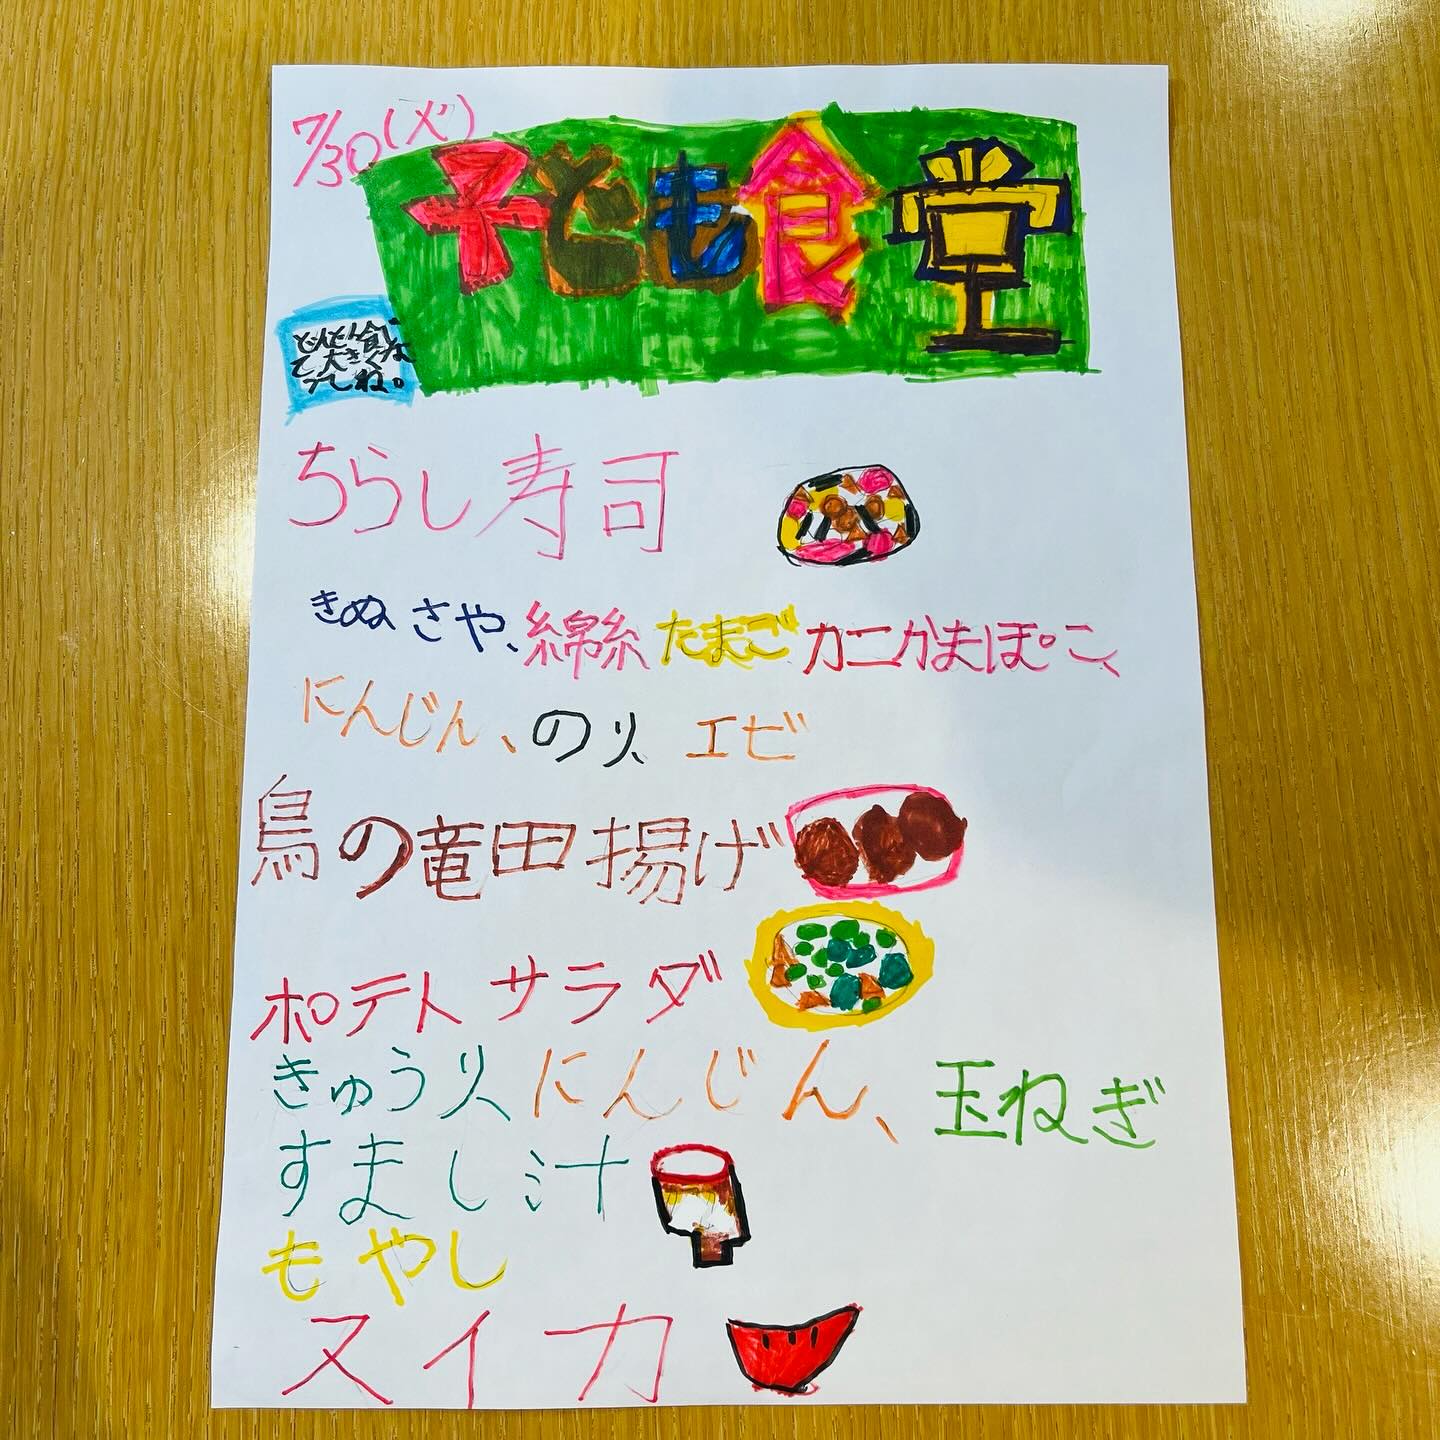 7/30(火)
子ども食堂
どんどん食べ
て大きくな
ってね。
ちらし寿司
きぬさや、綿糸たまご カニかまぼこ、
にんじん、のり、エビ
鳥の竜田揚げ
ポテトサラダ
きゅうり、にんじん、玉ねぎ
すまし汁
もやし
スイカ